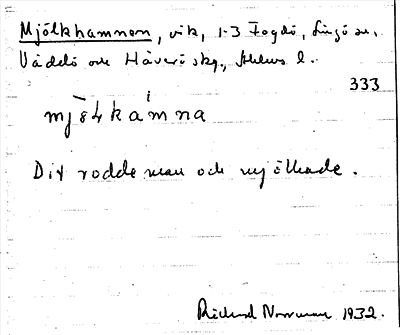 Mjölkhamnen, vik, 1-3 Fogdö, Singö sn,
Väddö och Häverö skg, Sthlms l.
333
mjölkamna
Dit rodde man och mjölkade.
Rickard Norrman 1932.